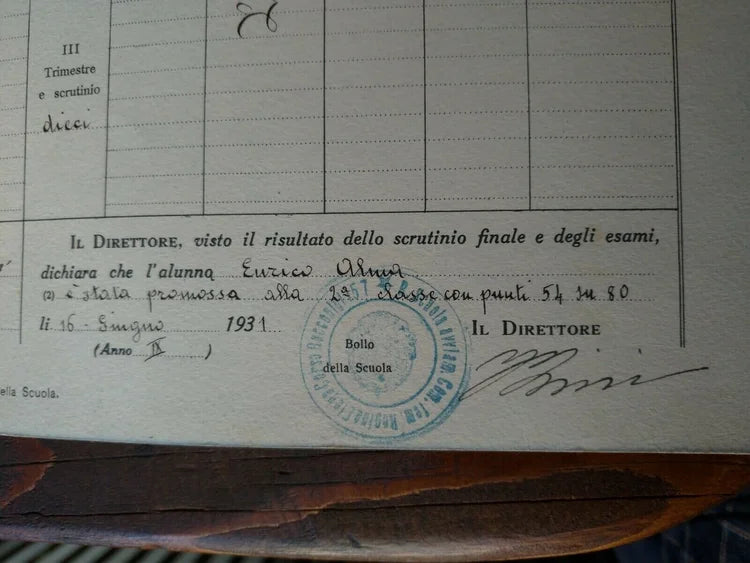 III
Trimestre
e scrutinio
dieci
IL DIRETTORE, visto il risultato dello scrutinio finale e degli esami,
dichiara che l'alunna Enrico Alma
(2) è stata promossa alla 2ª classe con punti 54 su 80
li 16 - Giugno 1931
(Anno IX )
IL DIRETTORE
Bollo
della Scuola
R. Scuola avviam. Com. fem. Regina Elena Corso Racconigi
ella Scuola.